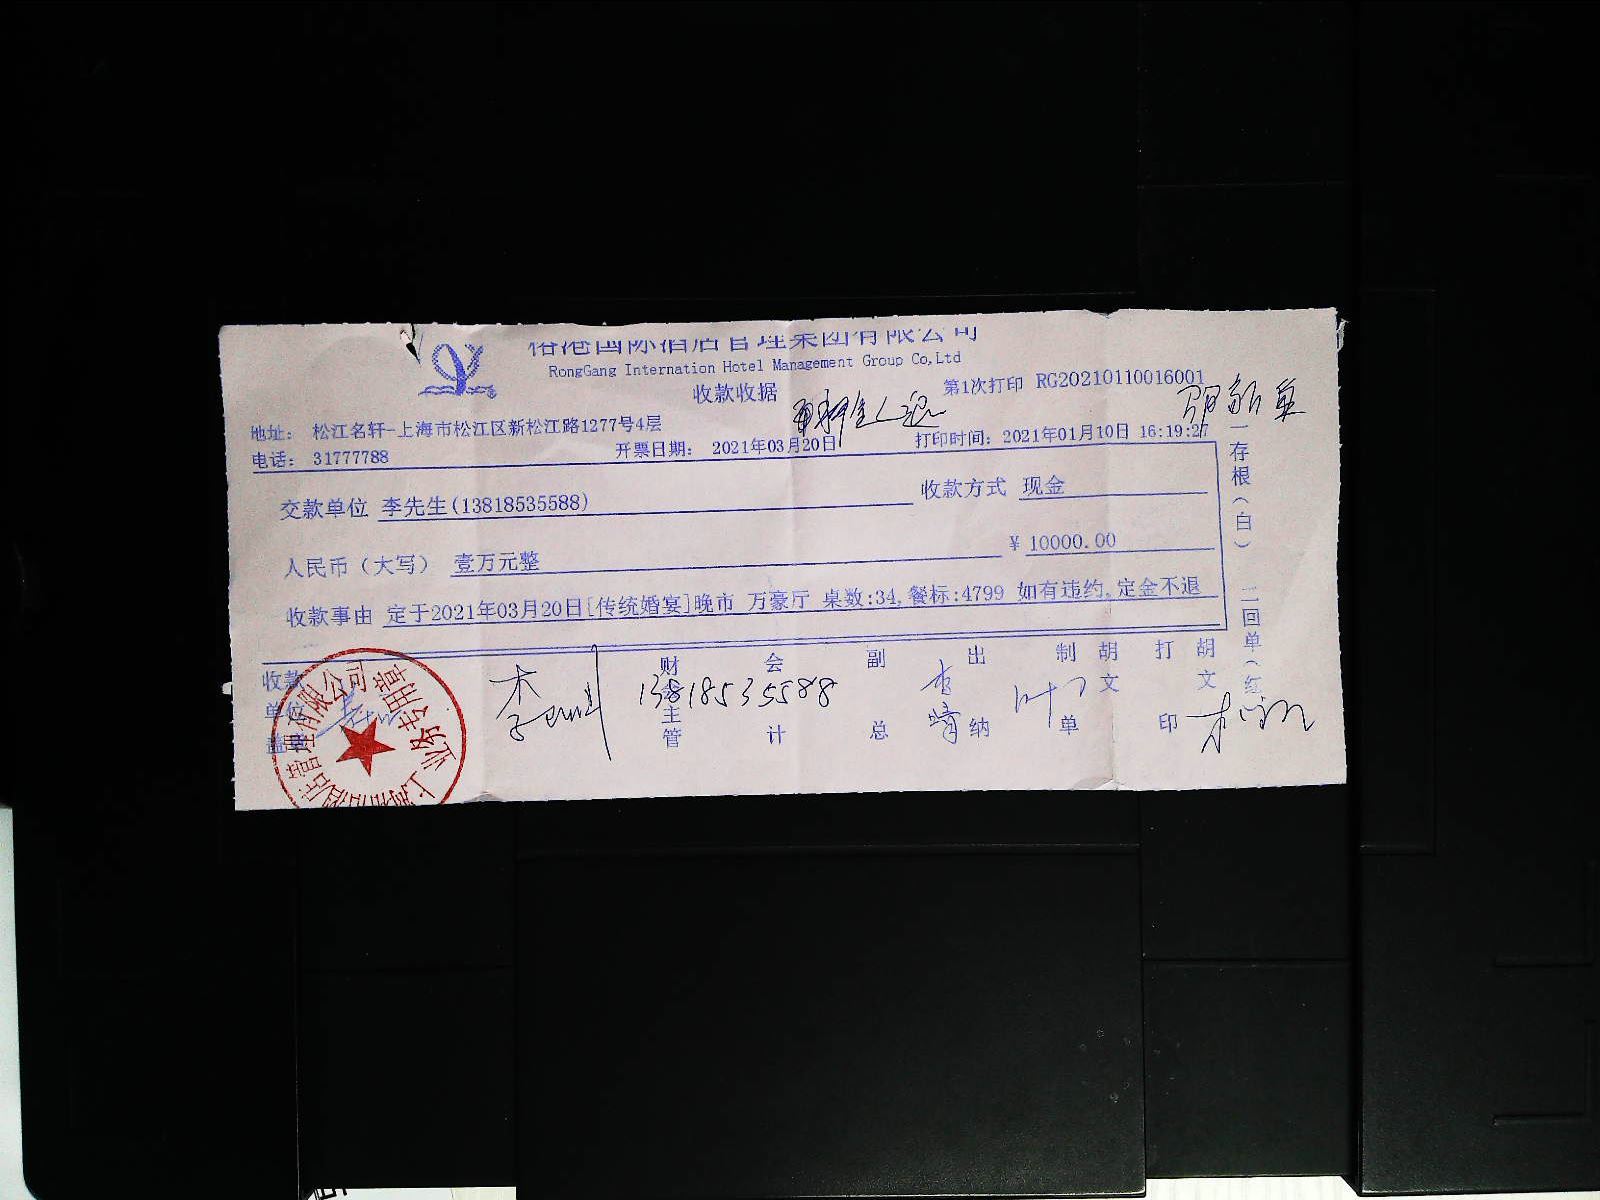 国际酒店管理集团有限公司
RongGang Internation Hotel Management Group Co,Ltd
收款收据
第1次打印 RG20210110016001
地址： 松江名轩-上海市松江区新松江路1277号4层
电话： 31777788
开票日期： 2021年03月20日
打印时间：2021年01月10日 16:19:27
交款单位 李先生(13818535588)
收款方式 现金
人民币（大写） 壹万元整
¥ 10000.00
收款事由 定于2021年03月20日[传统婚宴]晚市 万豪厅 桌数:34,餐标:4799 如有违约,定金不退
一存根(白) 二回单(红
收款单位
财 主管
会计
副总
出纳
制单
胡文
打印
胡文
13818535588
业务专用章